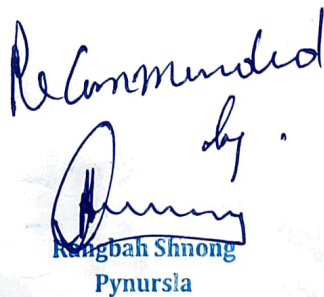 Recommended
by.
Rangbah Shnong
Pynursla